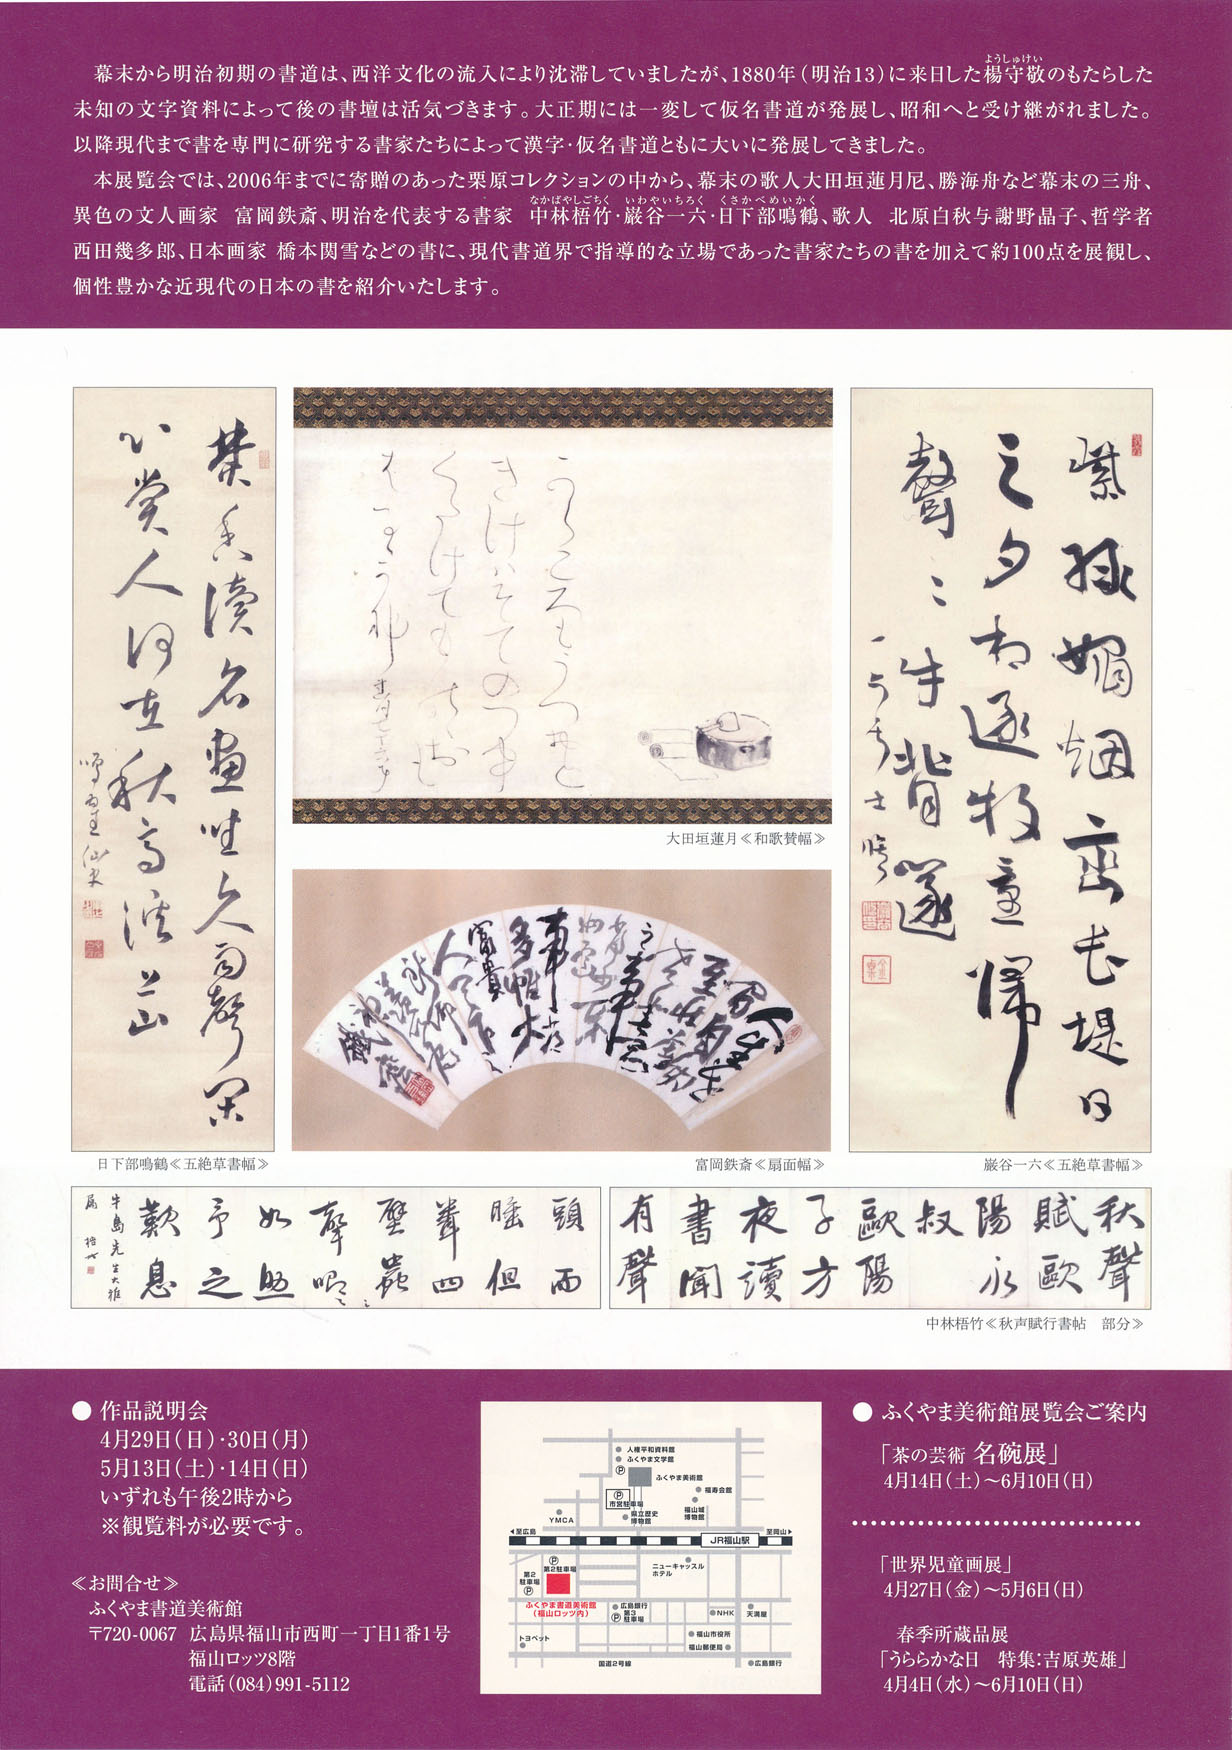 幕末から明治初期の書道は、西洋文化の流入により沈滞していましたが、1880年（明治13）に来日した楊守敬のもたらした
ようしゅけい
未知の文字資料によって後の書壇は活気づきます。大正期には一変して仮名書道が発展し、昭和へと受け継がれました。
以降現代まで書を専門に研究する書家たちによって漢字・仮名書道ともに大いに発展してきました。
本展覧会では、2006年までに寄贈のあった栗原コレクションの中から、幕末の歌人大田垣蓮月尼、勝海舟など幕末の三舟、
なかばやしごちく いわやいちろく くさかべめいかく
異色の文人画家 富岡鉄斎、明治を代表する書家 中林梧竹・巌谷一六・日下部鳴鶴、歌人 北原白秋与謝野晶子、哲学者
西田幾多郎、日本画家 橋本関雪などの書に、現代書道界で指導的な立場であった書家たちの書を加えて約100点を展観し、
個性豊かな近現代の日本の書を紹介いたします。
紫緑媚烟巒長堤日
之夕相逐牧童帰
聲〻牛背
焚香讀名画坐久雨聲
人何在秋高渓上山
大田垣蓮月≪和歌賛幅≫
日下部鳴鶴≪五絶草書幅≫
富岡鉄斎≪扇面幅≫
巌谷一六≪五絶草書幅≫
秋聲
賦歐
陽永
叔
歐陽
子方
夜讀
書聞
有聲
頭而
睡但
聞四
壁蟲
聲唧〻
如助
予之
歎息
牛島先生大雅
属 梧竹
中林梧竹≪秋声賦行書帖 部分≫
● 作品説明会
4月29日（日）・30日（月）
5月13日（土）・14日（日）
いずれも午後2時から
※観覧料が必要です。
≪お問合せ≫
ふくやま書道美術館
〒720-0067 広島県福山市西町一丁目1番1号
福山ロッツ8階
電話（084）991-5112
人権平和資料館
ふくやま文学館
Ⓟ
ふくやま美術館
Ⓟ
市営駐車場
福寿会館
県立歴史博物館
福山城博物館
YMCA
◀至広島
JR福山駅
至岡山▶
Ⓟ
第2駐車場
第2駐車場
Ⓟ
ニューキャッスルホテル
ふくやま書道美術館
（福山ロッツ内）
広島銀行
Ⓟ第3駐車場
NHK
天満屋
トヨペット
福山市役所
福山郵便局
国道2号線
広島銀行
● ふくやま美術館展覧会ご案内
「茶の芸術 名碗展」
4月14日（土）～6月10日（日）
「世界児童画展」
4月27日（金）～5月6日（日）
春季所蔵品展
「うららかな日 特集：吉原英雄」
4月4日（水）～6月10日（日）